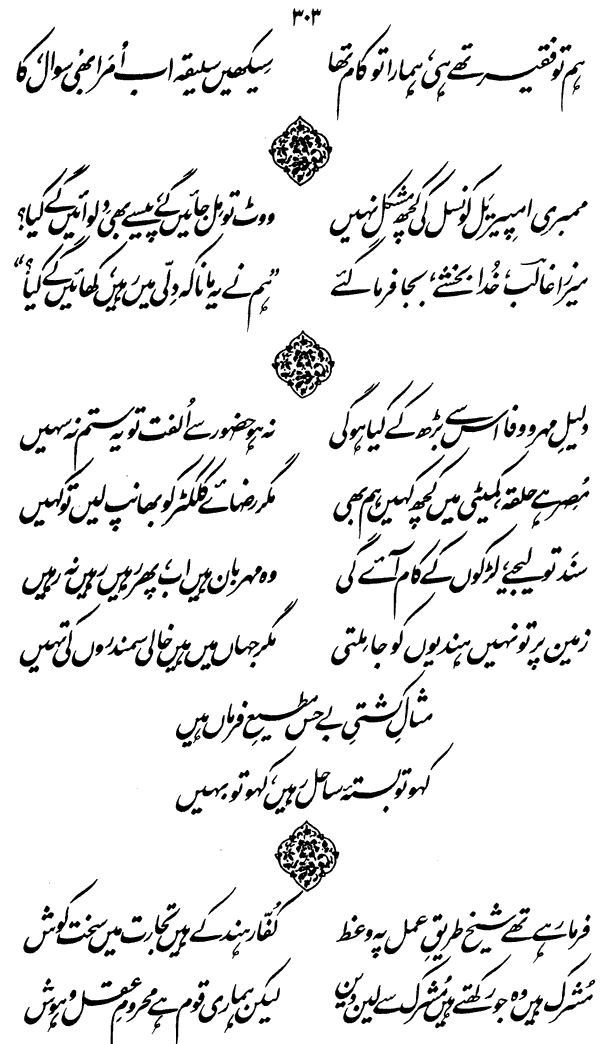 ۳۰۳
ہم تو فقیر تھے ہی، ہمارا تو کام تھا سیکھیں سلیقہ اب اُمَرا بھی ’سوال‘ کا
ممبری امپیریل کونسل کی کچھ مشکل نہیں ووٹ تو مل جائیں گے، پیسے بھی دلوائیں گے کیا؟
میرزا غالب، خُدا بخشے، بجا فرما گئے ”ہم نے یہ مانا کہ دلّی میں رہیں، کھائیں گے کیا؟“
دلیلِ مہر و وفا اس سے بڑھ کے کیا ہو گی نہ ہو حضور سے اُلفت تو یہ ستم نہ سہیں
مُصِر ہے حلقہ، کمیٹی میں کچھ کہیں ہم بھی مگر رضائے کلکٹر کو بھانپ لیں تو کہیں
سَند تو لیجیے، لڑکوں کے کام آئے گی وہ مہربان ہیں اب، پھر رہیں رہیں نہ رہیں
زمین پر تو نہیں ہندیوں کو جا ملتی مگر جہاں میں ہیں خالی سمندروں کی تہیں
مثالِ کشتیِ بے حس مطیعِ فرماں ہیں
کہو تو بستۂ ساحل رہیں، کہو تو بہیں
فرما رہے تھے شیخ طریقِ عمل پہ وعظ کُفّار ہند کے ہیں تجارت میں سخت کوش
مُشرک ہیں وہ جو رکھتے ہیں مُشرک سے لین دین لیکن ہماری قوم ہے محرومِ عقل و ہوش